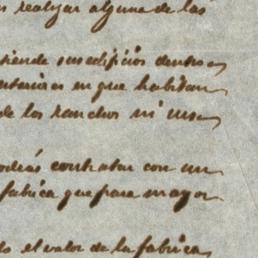 realzar alguna de las
tiende sus edificios dentro
anteriores en que habitan
de los ranchos ni una
podrás contratar con un
fabrica que para mayor
do el valor de la fabrica